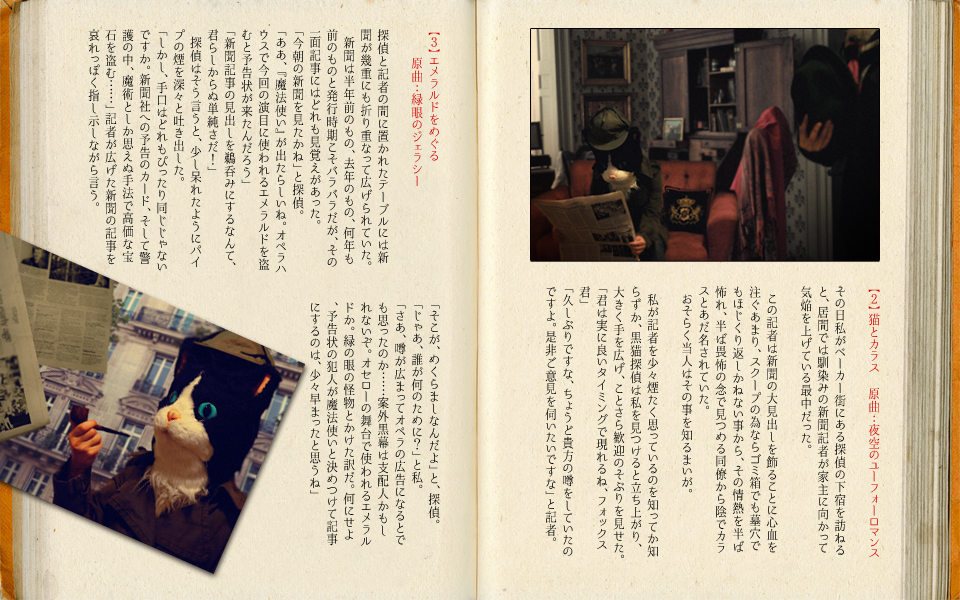 【2】猫とカラス　原曲：夜空のユーフォーロマンス
その日私がベーカー街にある探偵の下宿を訪ねる
と、居間では馴染みの新聞記者が家主に向かって
気焔を上げている最中だった。
この記者は新聞の大見出しを飾ることに心血を
注ぐあまり、スクープの為ならゴミ箱でも墓穴で
もほじくり返しかねない事から、その情熱を半ば
怖れ、半ば畏怖の念で見つめる同僚から陰でカラ
スとあだ名されていた。
おそらく当人はその事を知るまいが。
私が記者を少々煙たく思っているのを知ってか知
らずか、黒猫探偵は私を見つけると立ち上がり、
大きく手を広げ、ことさら歓迎のそぶりを見せた。
「君は実に良いタイミングで現れるね、フォックス
君」
「久しぶりですな、ちょうど貴方の噂をしていたの
ですよ。是非ご意見を伺いたいですな」と記者。
【3】エメラルドをめぐる
原曲：緑眼のジェラシー
探偵と記者の間に置かれたテーブルには新
聞が幾重にも折り重なって広げられていた。
新聞は半年前のもの、去年のもの、何年も
前のものと発行時期こそバラバラだが、その
一面記事にはどれも見覚えがあった。
「今朝の新聞を見たかね」と探偵。
「ああ、『魔法使い』が出たらしいね。オペラハ
ウスで今回の演目に使われるエメラルドを盗
むと予告状が来たんだろう」
「新聞記事の見出しを鵜呑みにするなんて、
君らしからぬ単純さだ！」
探偵はそう言うと、少し呆れたようにパイ
プの煙を深々と吐き出した。
「しかし、手口はどれもぴったり同じじゃない
ですか。新聞社への予告のカード、そして警
護の中、魔術としか思えぬ手法で高価な宝
石を盗む……」記者が広げた新聞の記事を
哀れっぽく指し示しながら言う。
「そこが、めくらましなんだよ」と、探偵。
「じゃあ、誰が何のために？」と私。
「さあ、噂が広まってオペラの広告になるとで
も思ったのか……案外黒幕は支配人かもし
れないぞ。オセローの舞台で使われるエメラル
ドか。緑の眼の怪物とかけた訳だ。何にせよ
、予告状の犯人が魔法使いと決めつけて記事
にするのは、少々早まったと思うね」